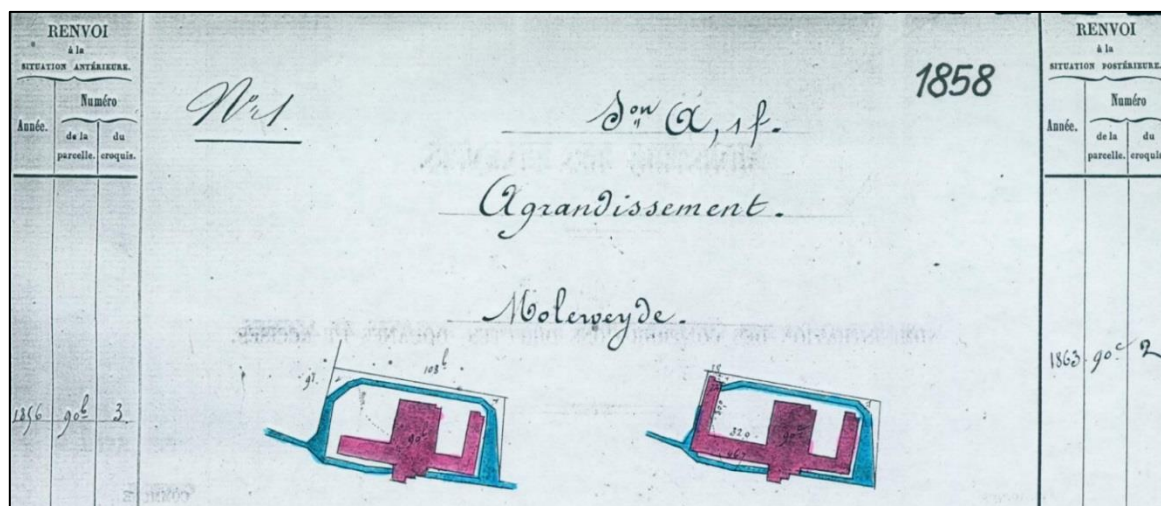 RENVOI
à la
SITUATION ANTÉRIEURE.
Année.
Numéro
de la parcelle.
du croquis.
1856 90b 3.
N° 1.
1858
Son A, 1 f.
Agrandissement.
Moleweyde.
103
90b
320
RENVOI
à la
SITUATION POSTÉRIEURE.
Année.
Numéro
de la parcelle.
du croquis.
1863 90c 2